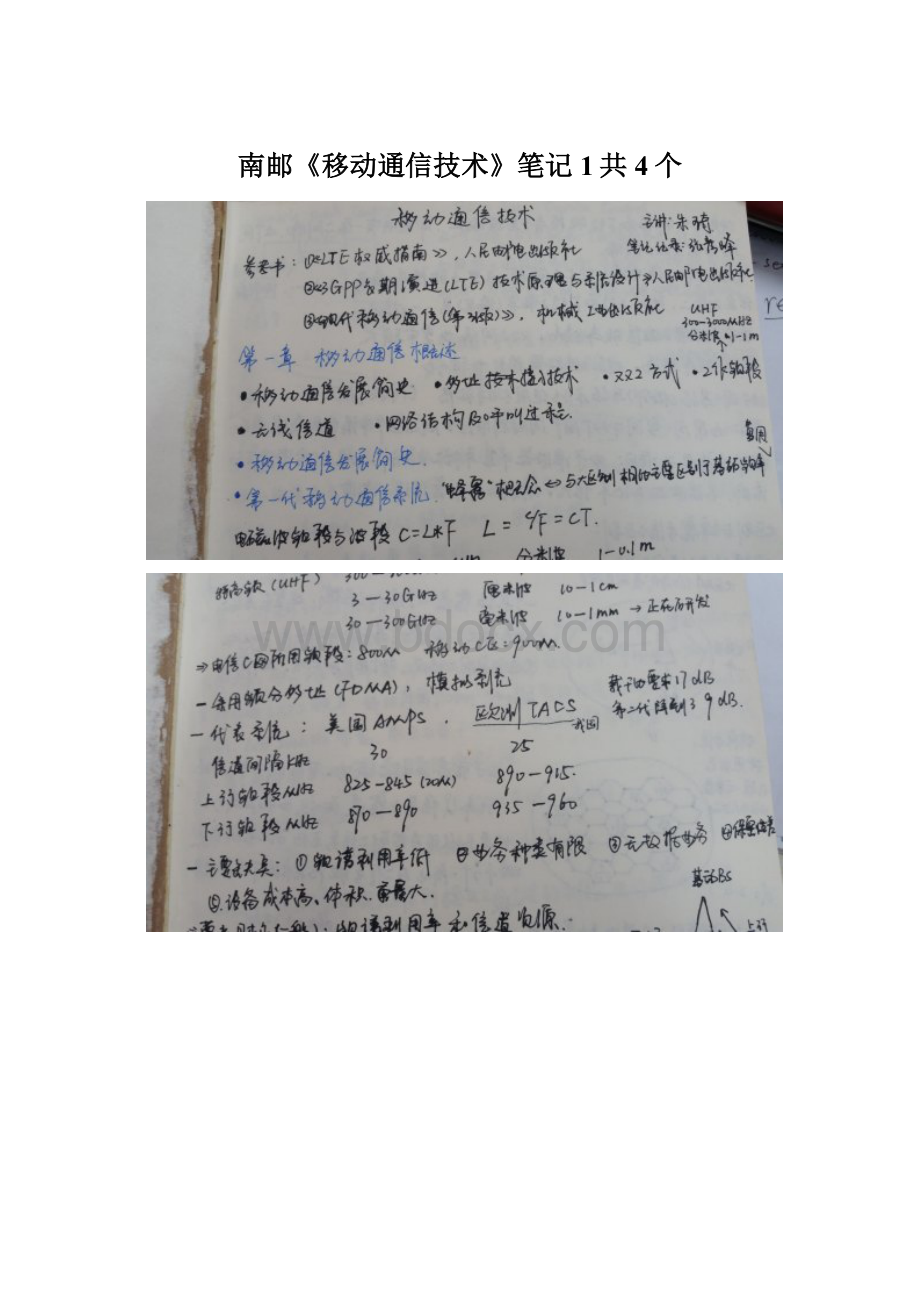 南邮《移动通信技术》笔记1共4个
移动通信技术
主讲:朱琦
参考书:①《LTE权威指南》,人民邮电出版社
笔记记录:
②《3GPP长期演进(LTE)技术原理与系统设计》人民邮电出版社
③《现代移动通信(第3版)》,机械工业出版社
UHF
300-3000MHz
分米波0.1-1m
第一章 移动通信概述
•移动通信发展简史 •多址技术接入技术 •双工方式 •工作频段
•无线信道 •网络结构及呼叫过程.
•移动通信发展简史.
复用
•第一代移动通信系统 "蜂窝"概念⇔与大区制相比主要区别于基站功率
电磁波频段与波段 C=L*F L=C/F=CT.
分米波 1-0.1m
特高频(UHF)
3—30GHz 厘米波 10-1cm
30—300GHz 毫米波 10-1mm →正在研发
⇒电信C网所用频段:800M 移动CE:900M.
—采用频分多址(FDMA),模拟系统
载干比要求17dB
第二代降到了9dB.
—代表系统:美国AMPS. 欧洲TACS
我国
信道间隔kHz 30 25
上行频段MHz 825-845(20M) 890-915.
下行频段MHz 870-890 935-960
—主要缺点:①频谱利用率低 ②业务种类有限 ③无数据业务 ④保密性差
⑤设备成本高、体积、重量大.
基站BS
频谱利用率和信道资源.
上行